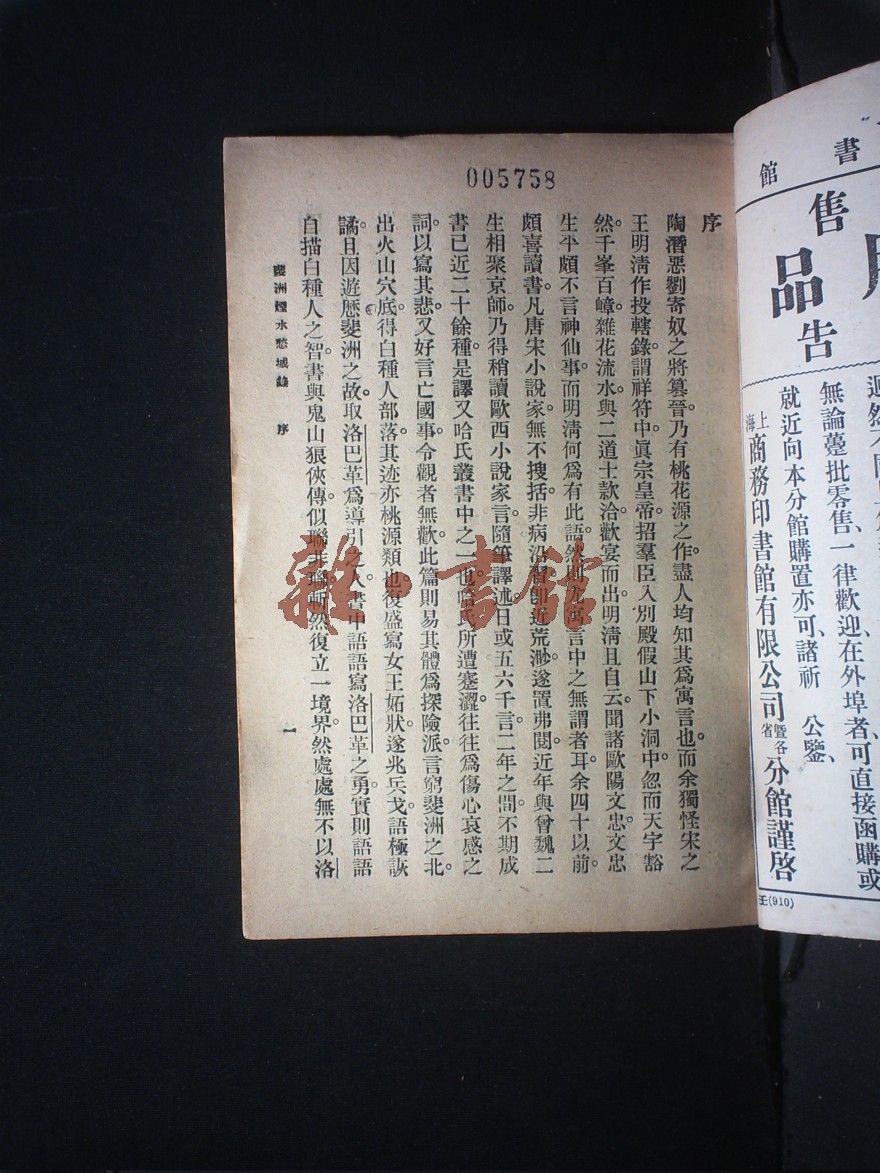 005758
序
陶潛惡劉寄奴之將篡晉。乃有桃花源之作。盡人均知其爲寓言也。而余獨怪宋之
王明清作投轄錄。謂祥符中。眞宗皇帝。招羣臣入別殿假山下小洞中。忽而天宇豁
然。千峯百嶂。雜花流水。與二道士款洽歡宴而出。明淸且自云。聞諸歐陽文忠。文忠
生平。頗不言神仙事。而明淸何爲有此語。然則寓言中之無謂者耳。余四十以前。
頗喜讀書。凡唐宋小說家。無不搜括。非病沿習。卽近荒渺。遂置弗閱。近年與曾魏二
生相聚京師。乃得稍讀歐西小說家言。隨筆譯述。日或五六千言。二年之間。不期成
書已近二十餘種。是譯又哈氏叢書中之一也。哈氏所遭蹇澀。往往爲傷心哀感之
詞。以寫其悲。又好言亡國事。令觀者無歡。此篇則易其體爲探險派。言窮斐洲之北。
出火山穴底。得白種人部落。其迹亦桃源類也。復盛寫女王妬狀。遂兆兵戈。語極詼
譎。且因遊歷斐洲之故。取洛巴革爲導引之人。書中語語寫洛巴革之勇。實則語語
自描白種人之智。書與鬼山狼俠傳。似聯非聯。斬然復立一境界。然處處無不以洛
斐洲煙水愁城錄　序
一
書
館
售
品
告
無論躉批零售、一律歡迎、在外埠者、可直接函購或
就近向本分館購置亦可、諸祈　公鑒、
上海商務印書館有限公司暨各省分館謹啓
壬(910)
雜·書館